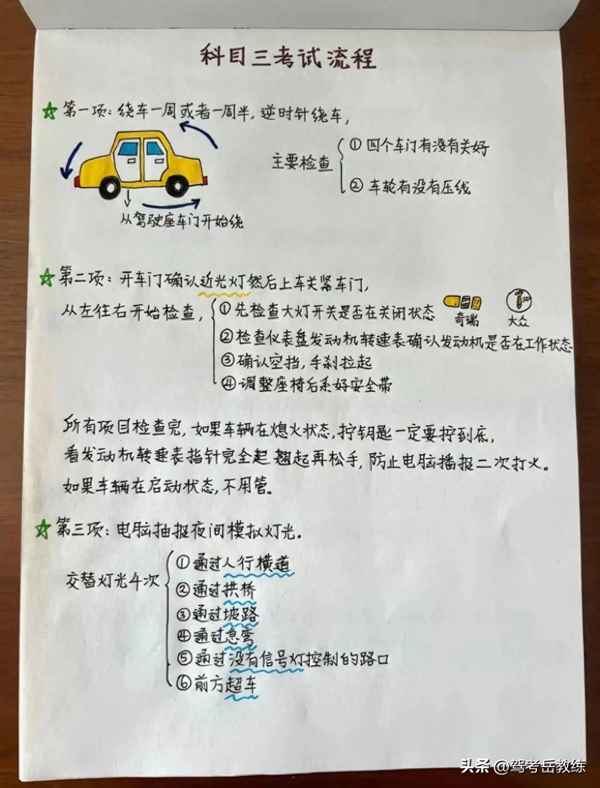 科目三考试流程
☆第一项：绕车一周或者一周半，逆时针绕车，
主要检查
①四个车门有没有关好
②车轮有没有压线
从驾驶座车门开始绕
☆第二项：开车门确认近光灯然后上车关紧车门，
从左往右开始检查，
①先检查大灯开关是否在关闭状态
奇瑞 大众
②检查仪表盘发动机转速表确认发动机是否在工作状态
③确认空挡，手刹拉起
④调整座椅后系好安全带
所有项目检查完，如果车辆在熄火状态，拧钥匙一定要拧到底，
看发动机转速表指针完全起翘起再松手，防止电脑播报二次打火。
如果车辆在启动状态，不用管。
☆第三项：电脑抽报夜间模拟灯光。
交替灯光4次
①通过人行横道
②通过拱桥
③通过坡路
④通过急弯
⑤通过没有信号灯控制的路口
⑥前方超车
头条 @驾考岳教练